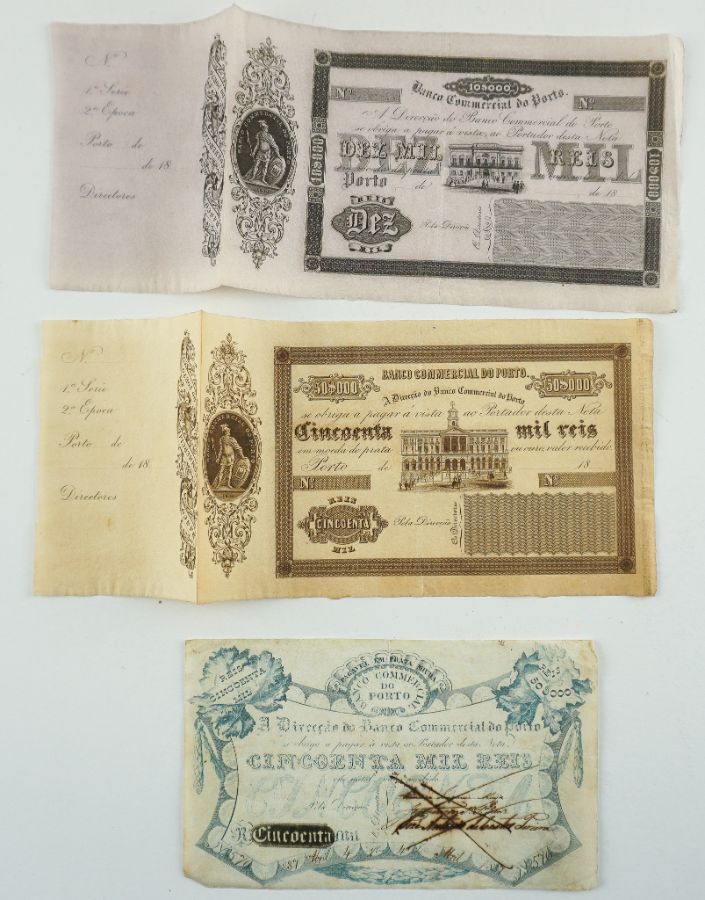 Nº
1ª Serie
2ª Epoca
Porto de
de 18
Directores
10$000.
Banco Commercial do Porto.
Nº Nº
A Direcção do Banco Commercial do Porto
se obriga a pagar à vista, ao Portador desta Nota
DEZ MIL REIS
MIL
Porto de de 18
10$000
10$000
REIS
Dez
MIL
Pela Direcção
O Director
Nº
1ª Serie
2ª Epoca
Porto de
de 18
Directores
BANCO COMMERCIAL DO PORTO.
50$000 50$000
A Direcção do Banco Commercial do Porto
se obriga a pagar à vista ao Portador desta Nota
Cincoenta mil reis
em moeda de prata ou ouro, valor recebido.
Porto de 18
Nº Nº
REIS
CINCOENTA
MIL
Pela Direcção
O Director
REIS
CINCOENTA
MIL
PAGAVEL EM PRATA
BANCO COMMERCIAL
DO
PORTO
50$000
A Direcção do Banco Commercial do Porto
se obriga a pagar à vista ao Portador desta Nota
CINCOENTA MIL REIS
Pela Direcção
Rs Cincoenta Mil
Abril 4 Abril